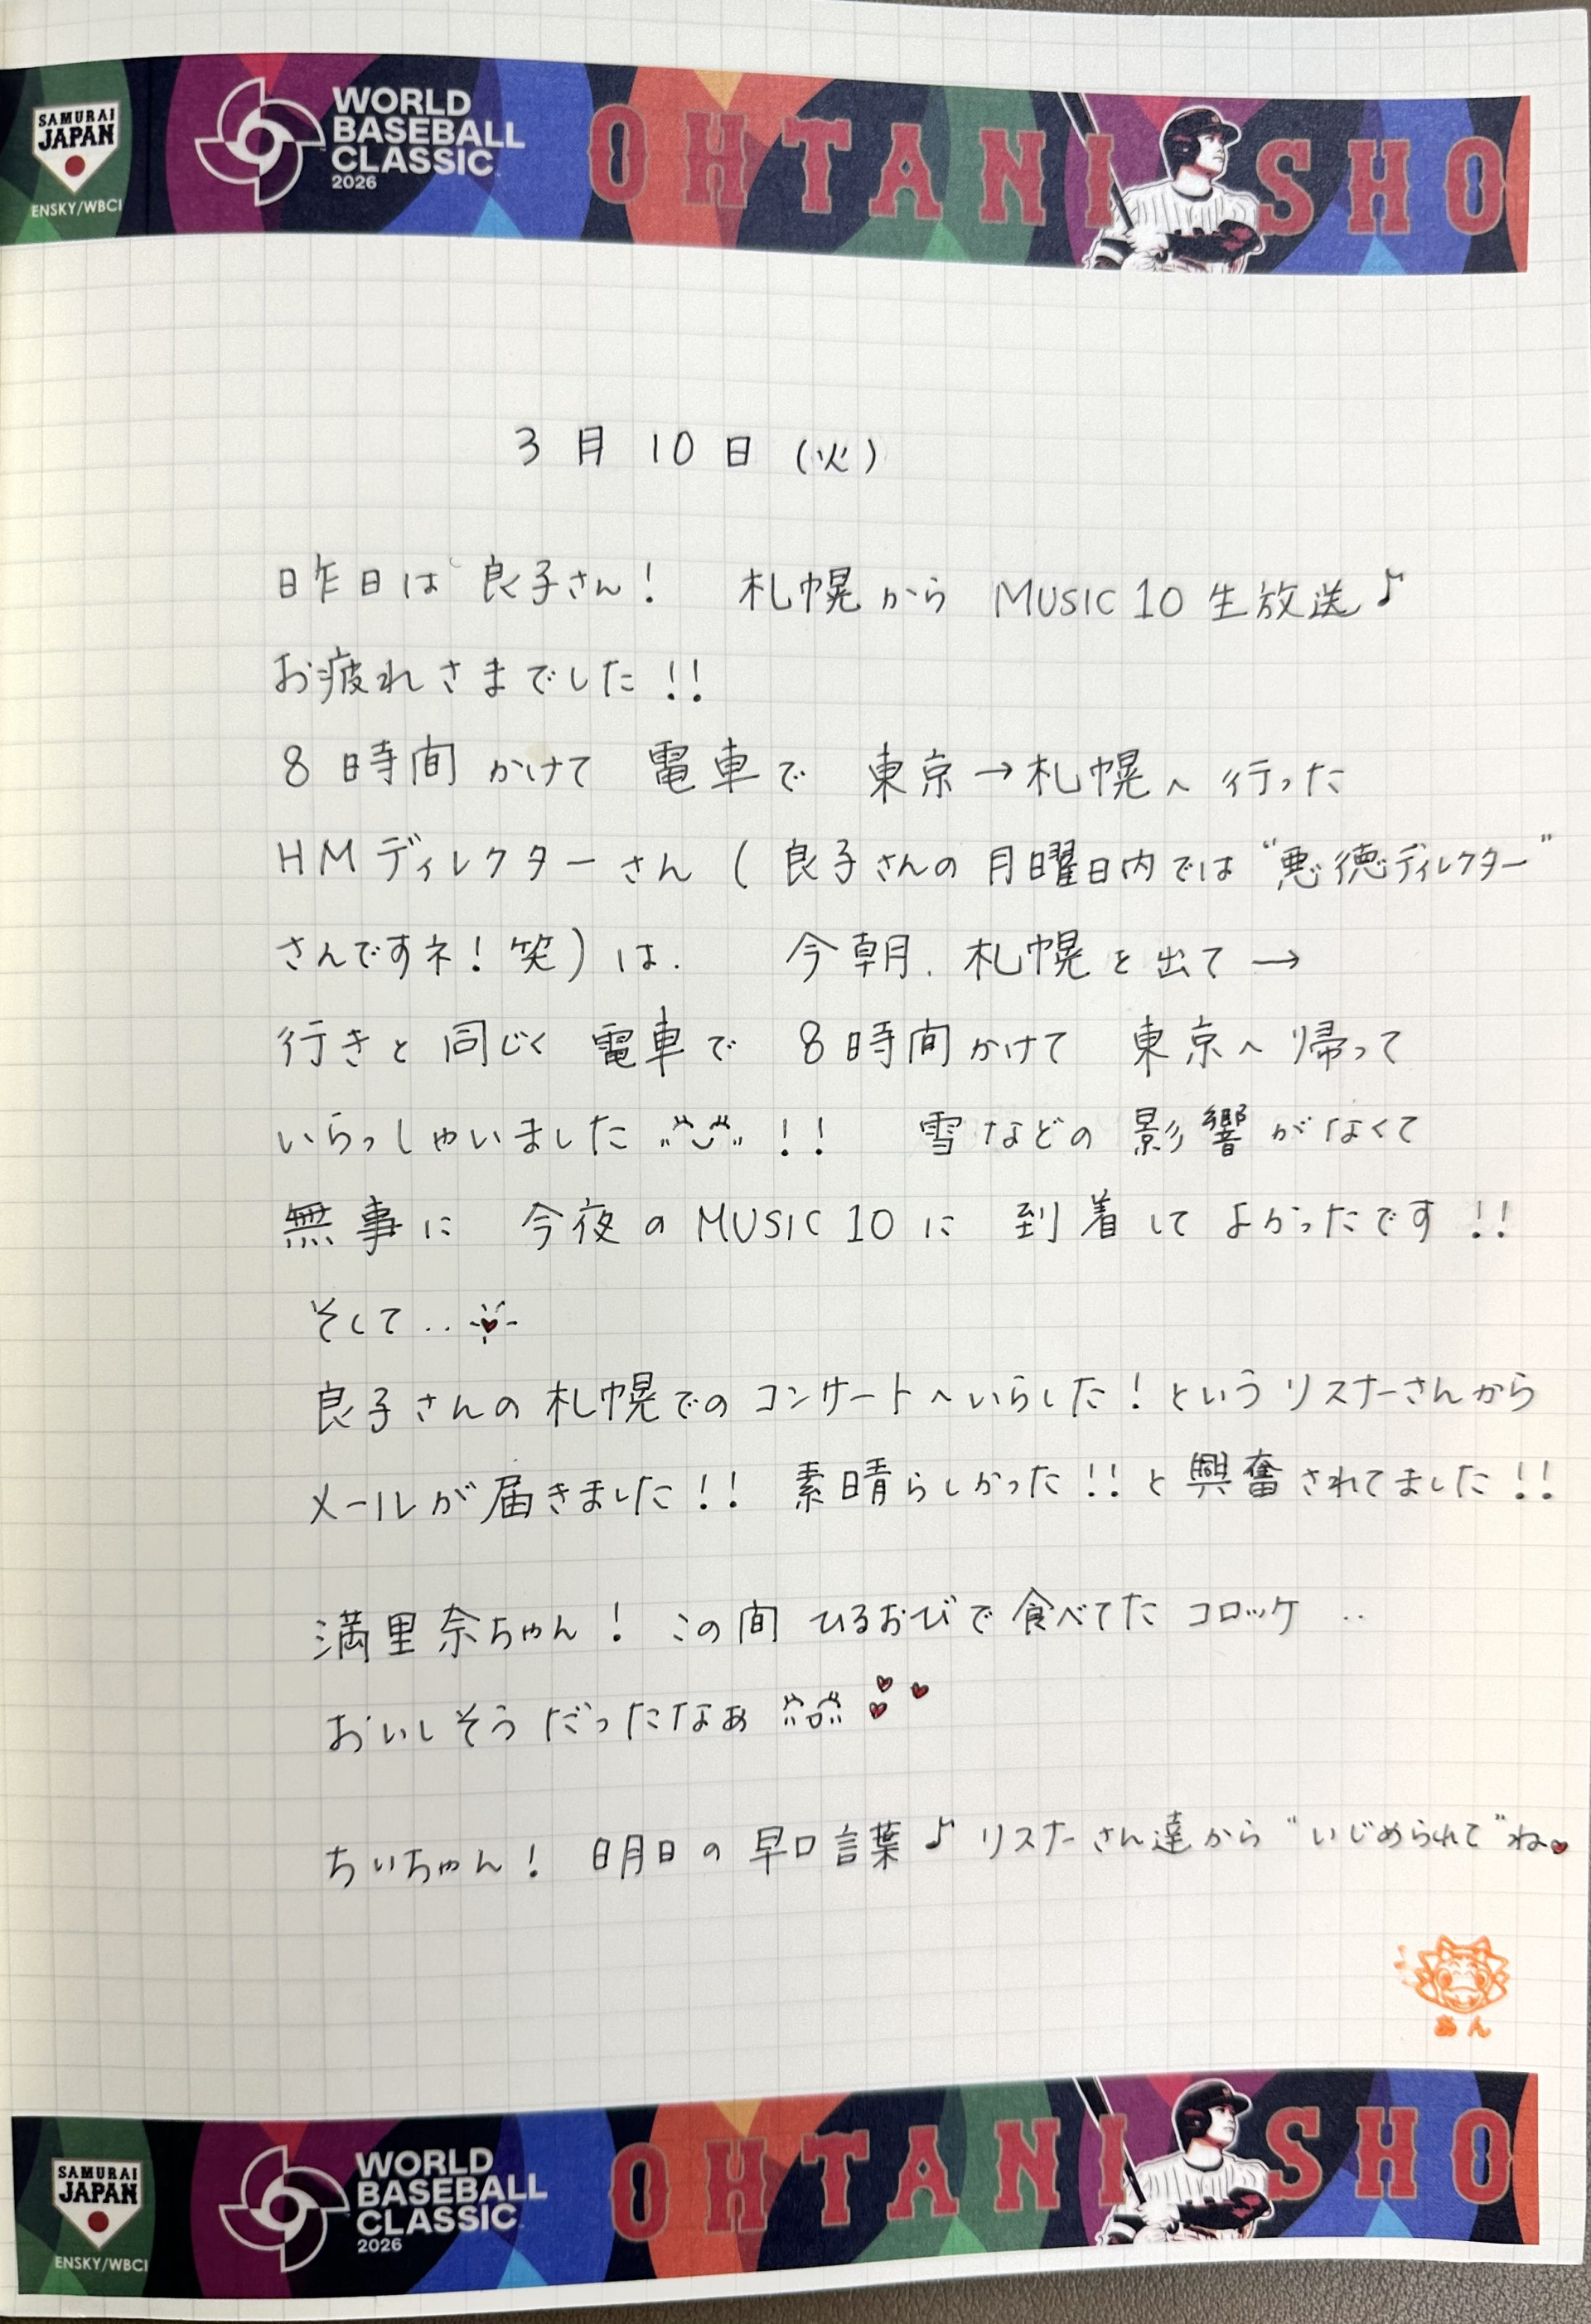 SAMURAI
JAPAN
ENSKY/WBCI
WORLD
BASEBALL
CLASSIC
2026
OHTANI SHO
3月10日(火)
昨日は良子さん! 札幌から MUSIC10 生放送♪
お疲れさまでした!!
8時間かけて 電車で 東京→札幌へ行った
HMディレクターさん(良子さんの月曜日内では"悪徳ディレクター"
さんですネ!笑)は. 今朝. 札幌を出て→
行きと同じく 電車で 8時間かけて 東京へ帰って
いらっしゃいました!! 雪などの影響がなくて
無事に 今夜のMUSIC10に 到着してよかったです!!
そして..
良子さんの札幌でのコンサートへいらした!というリスナーさんから
メールが届きました!! 素晴らしかった!!と興奮されてました!!
満里奈ちゃん! この間 ひるおびで食べてたコロッケ..
おいしそうだったなぁ
ちいちゃん! 明日の早口言葉♪リスナーさん達から"いじめられて"ね♥
あん
SAMURAI
JAPAN
ENSKY/WBCI
WORLD
BASEBALL
CLASSIC
2026
OHTANI SHO